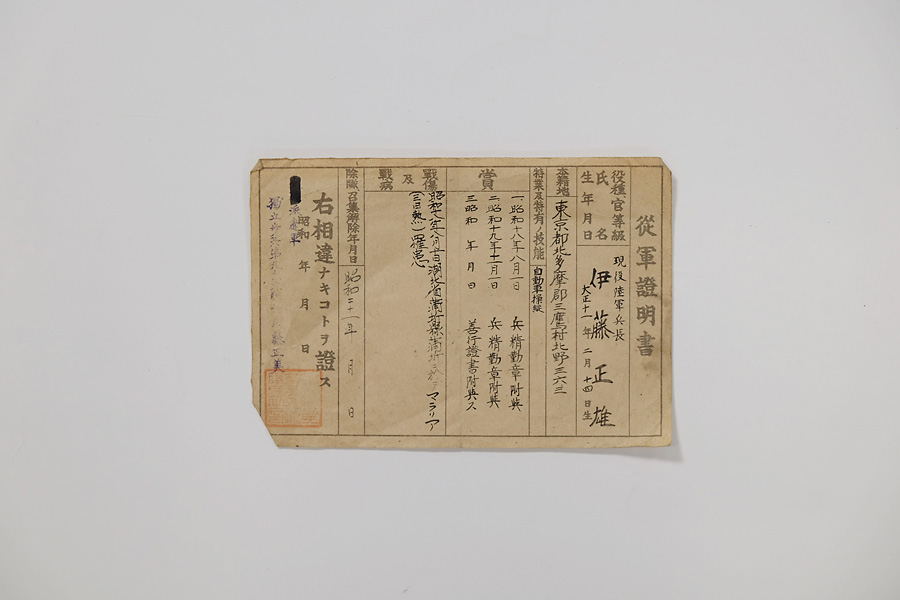 從軍證明書
役種官等級 現役 陸軍兵長
氏名 伊藤正雄
生年月日 大正十一年二月十四日生
本籍地 東京都北多摩郡三鷹村北野三六三
特業及特有ノ技能 自動車操縦
賞
一、昭和十八年八月一日 兵精勤章附與
二、昭和十九年十一月一日 兵精勤章附與
三、昭和 年 月 日 善行證書附與ス
戰傷及戰病
マラリア
(三日熱)ニ罹患
除隊召集解除年月日 昭和二十一年 月 日
右相違ナキコトヲ證ス
昭和 年 月 日